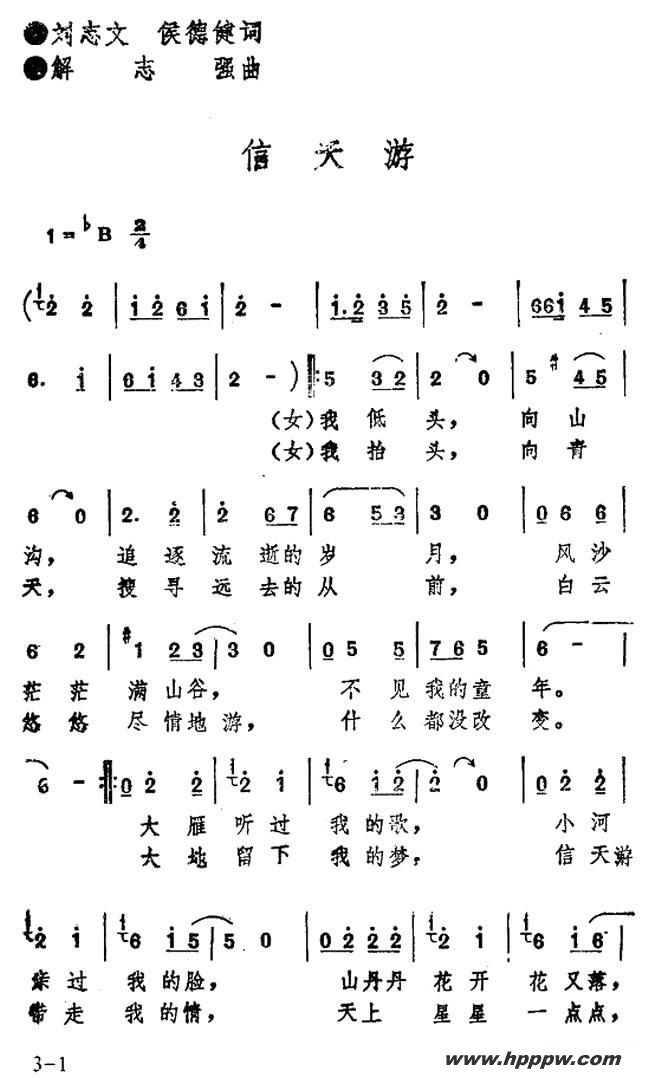 刘志文 侯德健词
解 志 强曲
信 天 游
1=♭B 2/4
(女)我 低 头， 向 山
(女)我 抬 头， 向 青
沟， 追 逐 流 逝 的 岁 月， 风 沙
天， 搜 寻 远 去 的 从 前， 白 云
茫 茫 满 山 谷， 不 见 我 的 童 年。
悠 悠 尽 情 地 游， 什 么 都 没 改 变。
大 雁 听 过 我 的 歌， 小 河
大 地 留 下 我 的 梦， 信 天 游
亲 过 我 的 脸， 山 丹 丹 花 开 花 又 落，
带 走 我 的 情， 天 上 星 星 一 点 点，
3-1
www.hpppw.com